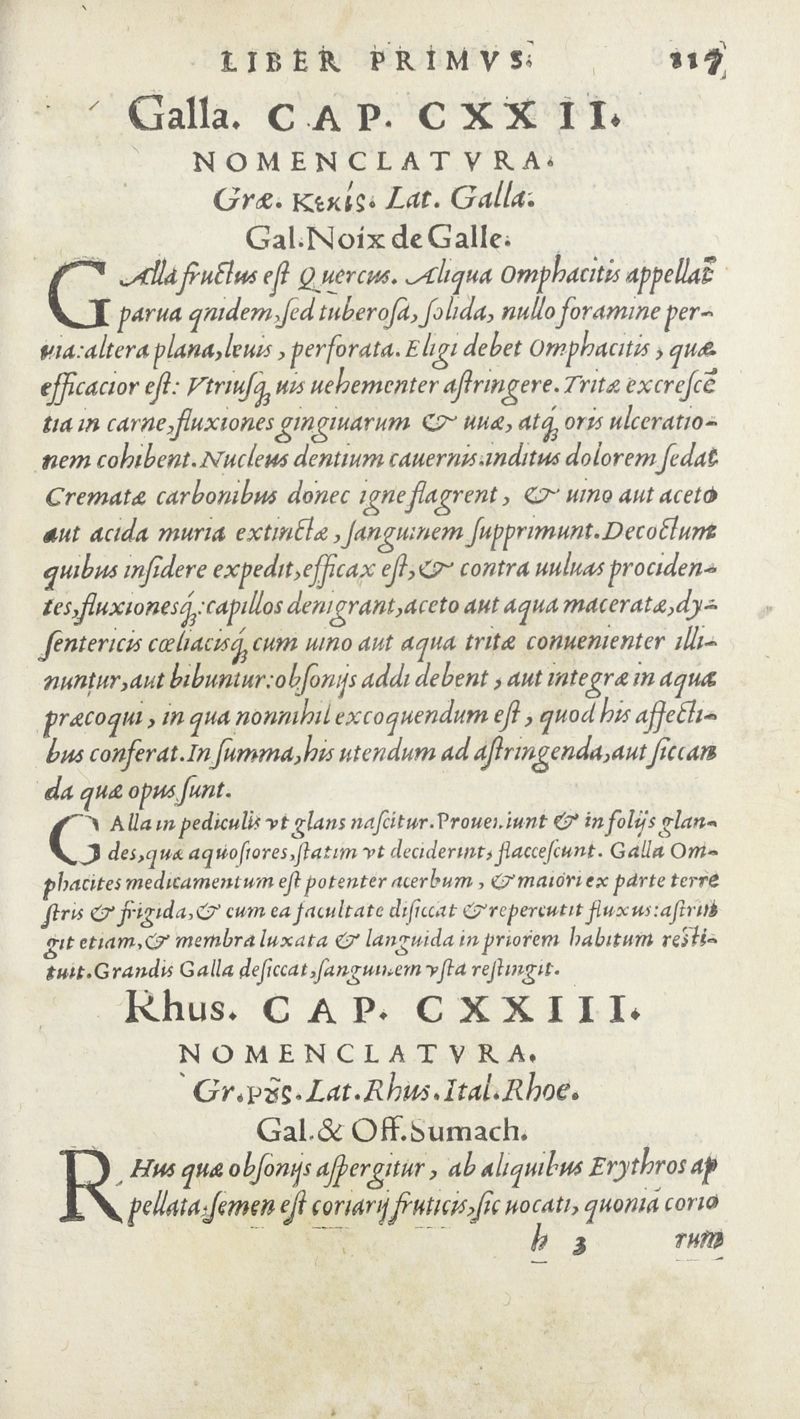 LIBER PRIMVS. 117
Galla. CAP. CXXII.
NOMENCLATVRA.
Græ. Κεκίς. Lat. Galla.
Gal. Noix de Galle.
GAlla fructus est Quercus. Aliqua Omphacitis appellat̃
parua qnidem, sed tuberosa, solida, nullo foramine per-
uia: altera plana, leuis, perforata. Eligi debet Omphacitis, quæ
efficacior est: Vtriusq; uis uehementer astringere. Tritæ excrescẽ
tia in carne, fluxiones gingiuarum & uuæ, atq; oris ulceratio-
nem cohibent. Nucleus dentium cauernis inditus dolorem sedat
Crematæ carbonibus donec igne flagrent, & uino aut aceto
aut acida muria extinctæ, sanguinem supprimunt. Decoctum
quibus insidere expedit, efficax est, & contra uuluas prociden-
tes, fluxionesq́;: capillos denigrant, aceto aut aqua maceratæ, dy-
sentericis cœliacisq́; cum uino aut aqua tritæ conuenienter illi-
nuntur, aut bibuntur: obsonijs addi debent, aut integræ in aqua
præcoqui, in qua nonnihil excoquendum est, quod his affecti-
bus conferat. In summa, his utendum ad astringenda, aut siccan
da quæ opus sunt.
GAlla in pediculis vt glans nascitur. Proueniunt & in folijs glan-
des, quæ aquosiores, statim vt deciderint, flaccescunt. Galla Om-
phacites medicamentum est potenter acerbum, & maiori ex parte terre
stris & frigida, & cum ea facultate disiccat & repercutit fluxus: astrin
git etiam, & membra luxata & languida in priorem habitum resti-
tuit. Grandis Galla desiccat, sanguinem vsta restingit.
Rhus. CAP. CXXIII.
NOMENCLATVRA.
Gr. Ρȣ̃ς. Lat. Rhus. Ital. Rhoe.
Gal. & Off. Sumach.
RHus quæ obsonijs aspergitur, ab aliquibus Erythros ap
pellata: semen est coriarij fruticis, sic uocati, quoniã corio
h 3 rum